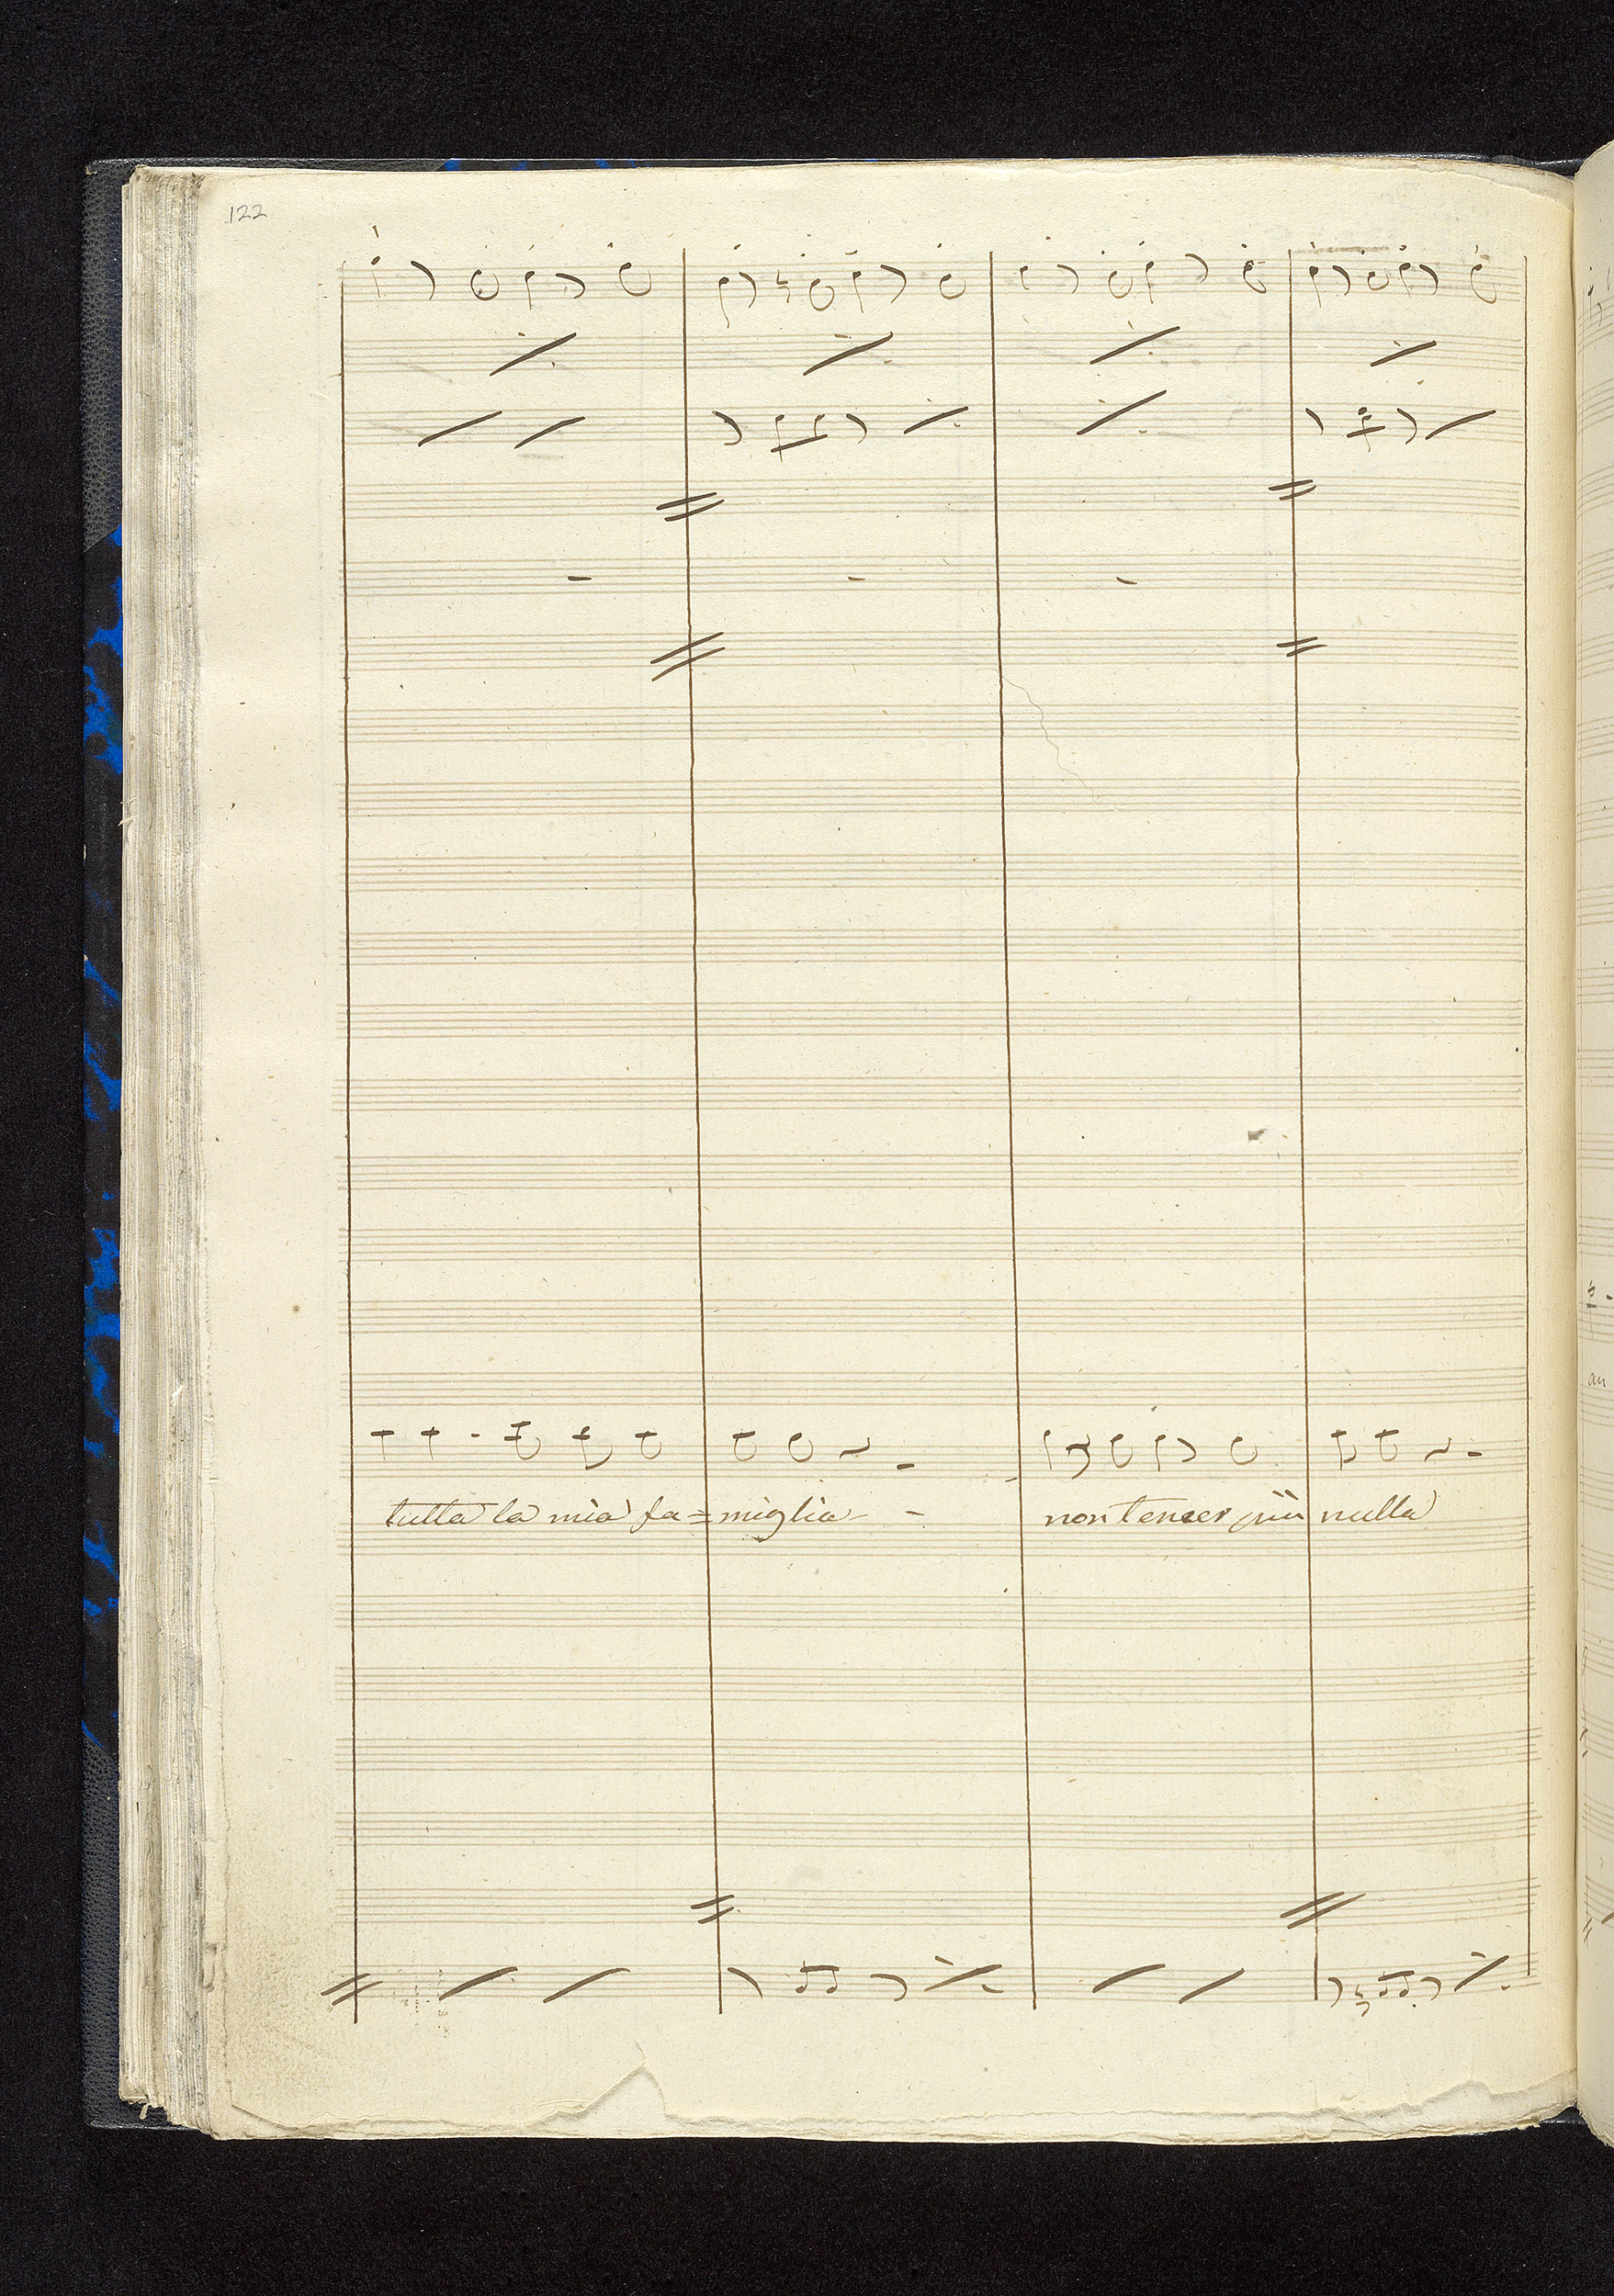 122
tutta la mia fa= miglia - - non temer più nulla